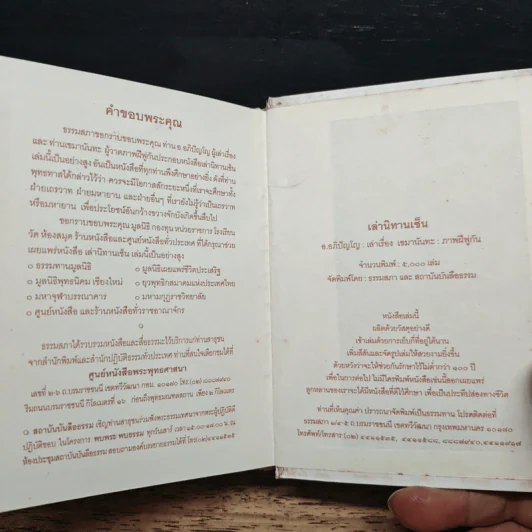 คำขอบพระคุณ
ธรรมสภาขอกราบขอบพระคุณ ท่าน อ.อภิปัญโญ ผู้เล่าเรื่อง
และ ท่านเขมานันทะ ผู้วาดภาพฝีพู่กันประกอบหนังสือเล่านิทานเซ็น
เล่มนี้เป็นอย่างสูง อันเป็นหนังสือที่ทุกท่านพึงศึกษาอย่างยิ่ง ดังที่ท่าน
พุทธทาสได้กล่าวไว้ว่า ควรจะมีโอกาสสักระยะหนึ่งที่เราจะศึกษาทั้ง
ฝ่ายเถรวาท ฝ่ายมหายาน และฝ่ายอื่นๆ ที่เรายังไม่รู้ว่าเป็นเถรวาท
หรือมหายาน เพื่อประโยชน์อันกว้างขวางจักบังเกิดขึ้นสืบไป
ขอกราบขอบพระคุณ มูลนิธิ กองทุน หน่วยราชการ โรงเรียน
วัด ห้องสมุด ร้านหนังสือและศูนย์หนังสือทั่วประเทศ ที่ได้กรุณาช่วย
เผยแพร่หนังสือ เล่านิทานเซ็น เล่มนี้เป็นอย่างสูง
○ ธรรมทานมูลนิธิ ○ มูลนิธิเผยแพร่ชีวิตประเสริฐ
○ มูลนิธิพุทธนิคม เชียงใหม่ ○ ยุวพุทธิกสมาคมแห่งประเทศไทย
○ มหาจุฬาบรรณาคาร ○ มหามกุฏราชวิทยาลัย
○ ศูนย์หนังสือ และร้านหนังสือทั่วราชอาณาจักร
ธรรมสภาได้รวบรวมหนังสือ และสื่อธรรมะไว้บริการแก่สาธุชน
จากสำนักพิมพ์และสำนักปฏิบัติธรรมทั่วประเทศ ท่านที่สนใจเลือกชมได้ที่
ศูนย์หนังสือพระพุทธศาสนา
○ สถาบันบันลือธรรม เชิญท่านสาธุชนร่วมฟังพระธรรมเทศนาจากพระผู้ปฏิบัติดี
ปฏิบัติชอบ ในโครงการ พบพระ พบธรรม ทุกวันเสาร์
เล่านิทานเซ็น
อ.อภิปัญโญ : เล่าเรื่อง เขมานันทะ : ภาพฝีพู่กัน
จำนวนพิมพ์ : ๕,๐๐๐ เล่ม
จัดพิมพ์โดย : ธรรมสภา และ สถาบันบันลือธรรม
หนังสือเล่มนี้
ผลิตด้วยวัสดุอย่างดี
เข้าเล่มด้วยการเย็บกี่ที่อยู่ได้นาน
เพิ่มสีสันและจัดรูปเล่มให้สวยงามยิ่งขึ้น
ด้วยหวังว่าจะให้ช่วยกันรักษาไว้ไม่ต่ำกว่า ๑๐๐ ปี
เพื่อในกาลต่อไป ไม่มีใครพิมพ์หนังสือเช่นนี้ออกเผยแพร่
ลูกหลานของเราจะได้มีหนังสือที่ดีไว้ศึกษา เพื่อเป็นประทีปส่องทางชีวิต
ท่านที่เห็นคุณค่า ปรารถนาจัดพิมพ์เป็นธรรมทาน โปรดติดต่อที่
ธรรมสภา ๑/๔-๕ ถ.บรมราชชนนี เขตทวีวัฒนา กรุงเทพมหานคร ๑๐๑๗๐